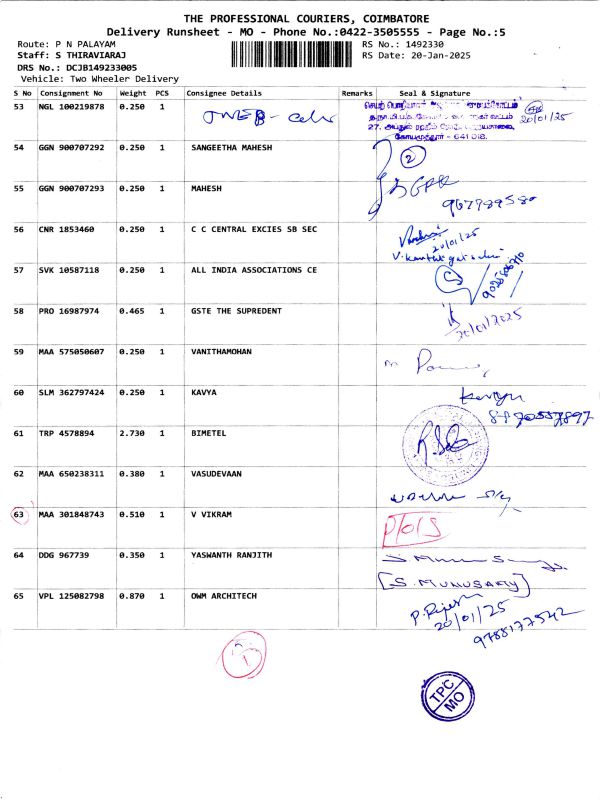 THE PROFESSIONAL COURIERS, COIMBATORE
Delivery Runsheet - MO - Phone No.:0422-3505555 - Page No.:5
Route: P N PALAYAM RS No.: 1492330
Staff: S THIRAVIARAJ RS Date: 20-Jan-2025
DRS No.: DCJB149233005
Vehicle: Two Wheeler Delivery
S No Consignment No Weight PCS Consignee Details Remarks Seal & Signature
53 NGL 100219878 0.250 1 20/01/25
27,
- 641 018.
54 GGN 900707292 0.250 1 SANGEETHA MAHESH 2
55 GGN 900707293 0.250 1 MAHESH
56 CNR 1853460 0.250 1 C C CENTRAL EXCIES SB SEC
20/01/25
57 SVK 10587118 0.250 1 ALL INDIA ASSOCIATIONS CE
58 PRO 16987974 0.465 1 GSTE THE SUPREDENT
20/01/2025
59 MAA 575050607 0.250 1 VANITHAMOHAN
60 SLM 362797424 0.250 1 KAVYA Kavya
61 TRP 4578894 2.730 1 BIMETEL
62 MAA 650238311 0.380 1 VASUDEVAAN
63 MAA 301848743 0.510 1 V VIKRAM
64 DDG 967739 0.350 1 YASWANTH RANJITH
[S. MUNUSAMY]
65 VPL 125082798 0.870 1 OWM ARCHITECH
20/01/25
9788177542
TPC
MO